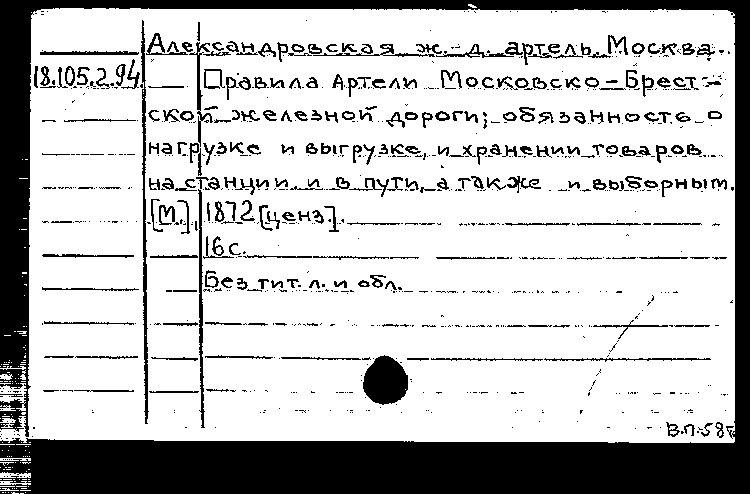 Александровская ж.-д. артель. Москва.
18.105.2.94
Правила Артели Московско-Брест-
ской железной дороги; обязанность о
нагрузке и выгрузке, и хранении товаров
на станции и в пути, а также и выборным.
[М.], 1872 [ценз].
16 с.
Без тит. л. и обл.